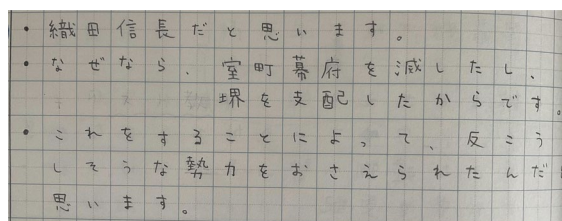 ・織田信長だと思います。
・なぜなら、室町幕府を滅したし、
堺を支配したからです。
・これをすることによって、反こう
しそうな勢力をおさえられたんだ
思います。